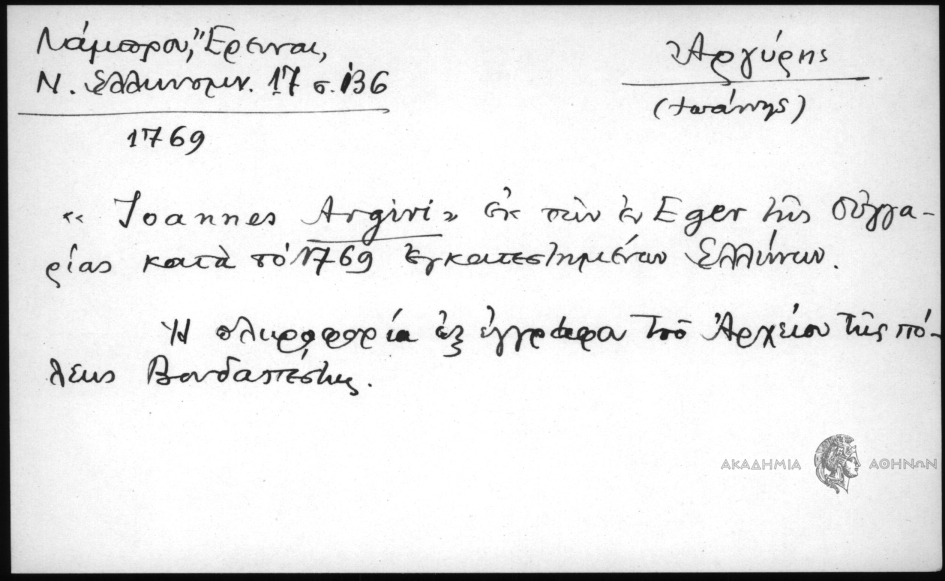 Λάμπρου, "Ἔρευναι,
Ν. Ἑλληνομν. 17 σ. 136
1769
Ἀργύρης
(Ἰωάννης)
« Ioannes Argiri » ἐκ τῶν ἐν Eger τῆς Οὑγγα-
ρίας κατὰ τὸ 1769 ἐγκατεστημένων Ἑλλήνων.
Ἡ πληροφορία ἐξ ἐγγράφου τοῦ Ἀρχείου τῆς πό-
λεως Βουδαπέστης.
ΑΚΑΔΗΜΙΑ ΑΘΗΝΩΝ